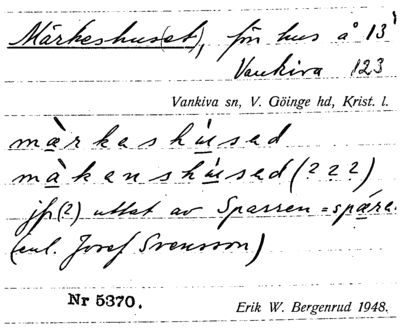 Märkeshus(et), för hus å 13¹
Vankiva 123
Vankiva sn, V. Göinge hd, Krist. l.
màrkashúsad
màkanshúsad (???)
jfr (?) uttal av Sparren = spára.
(enl. Josef Svensson)
Nr 5370.
Erik W. Bergenrud 1948.